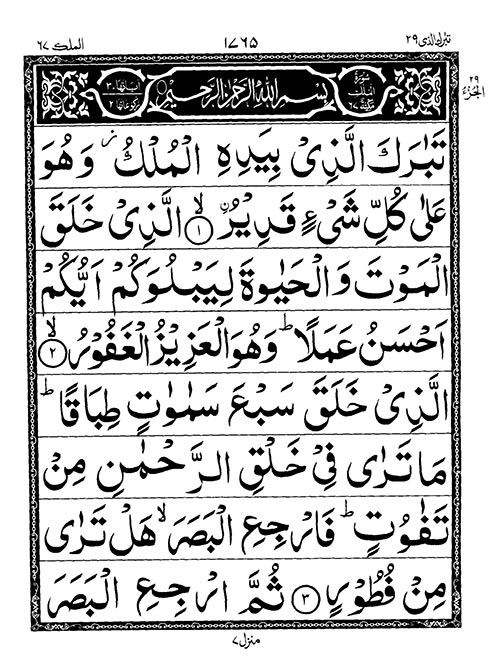 تبٰرك الذی ٢٩ ١٧٦٥ الملك ٦٧
الجزء ٢٩
سُوْرَةُ الْمُلْكِ مَكِّيَّةٌ ٦٧ بِسْمِ اللّٰهِ الرَّحْمٰنِ الرَّحِيْمِ اٰيَاتُهَا ٣٠ رُكُوْعَاتُهَا ٢
تَبٰرَكَ الَّذِیْ بِیَدِهِ الْمُلْكُ ؗ وَ هُوَ
عَلٰی كُلِّ شَیْءٍ قَدِیْرُۨ ۙ﴿١﴾ الَّذِیْ خَلَقَ
الْمَوْتَ وَ الْحَیٰوةَ لِیَبْلُوَكُمْ اَیُّكُمْ
اَحْسَنُ عَمَلًا ؕ وَ هُوَ الْعَزِیْزُ الْغَفُوْرُ ۙ﴿٢﴾
الَّذِیْ خَلَقَ سَبْعَ سَمٰوٰتٍ طِبَاقًا ؕ
مَا تَرٰی فِیْ خَلْقِ الرَّحْمٰنِ مِنْ
تَفٰوُتٍ ؕ فَارْجِعِ الْبَصَرَ ۙ هَلْ تَرٰی
مِنْ فُطُوْرٍ ﴿٣﴾ ثُمَّ ارْجِعِ الْبَصَرَ
منزل ٧